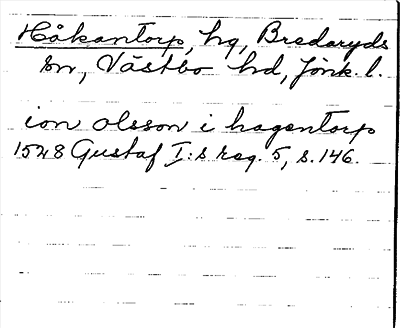 Håkantorp, hg, Bredaryds
sn, Västbo hd, Jönk. l.
ion olsson i hagentorp
1528 Gustaf I:s reg. 5, s. 146.